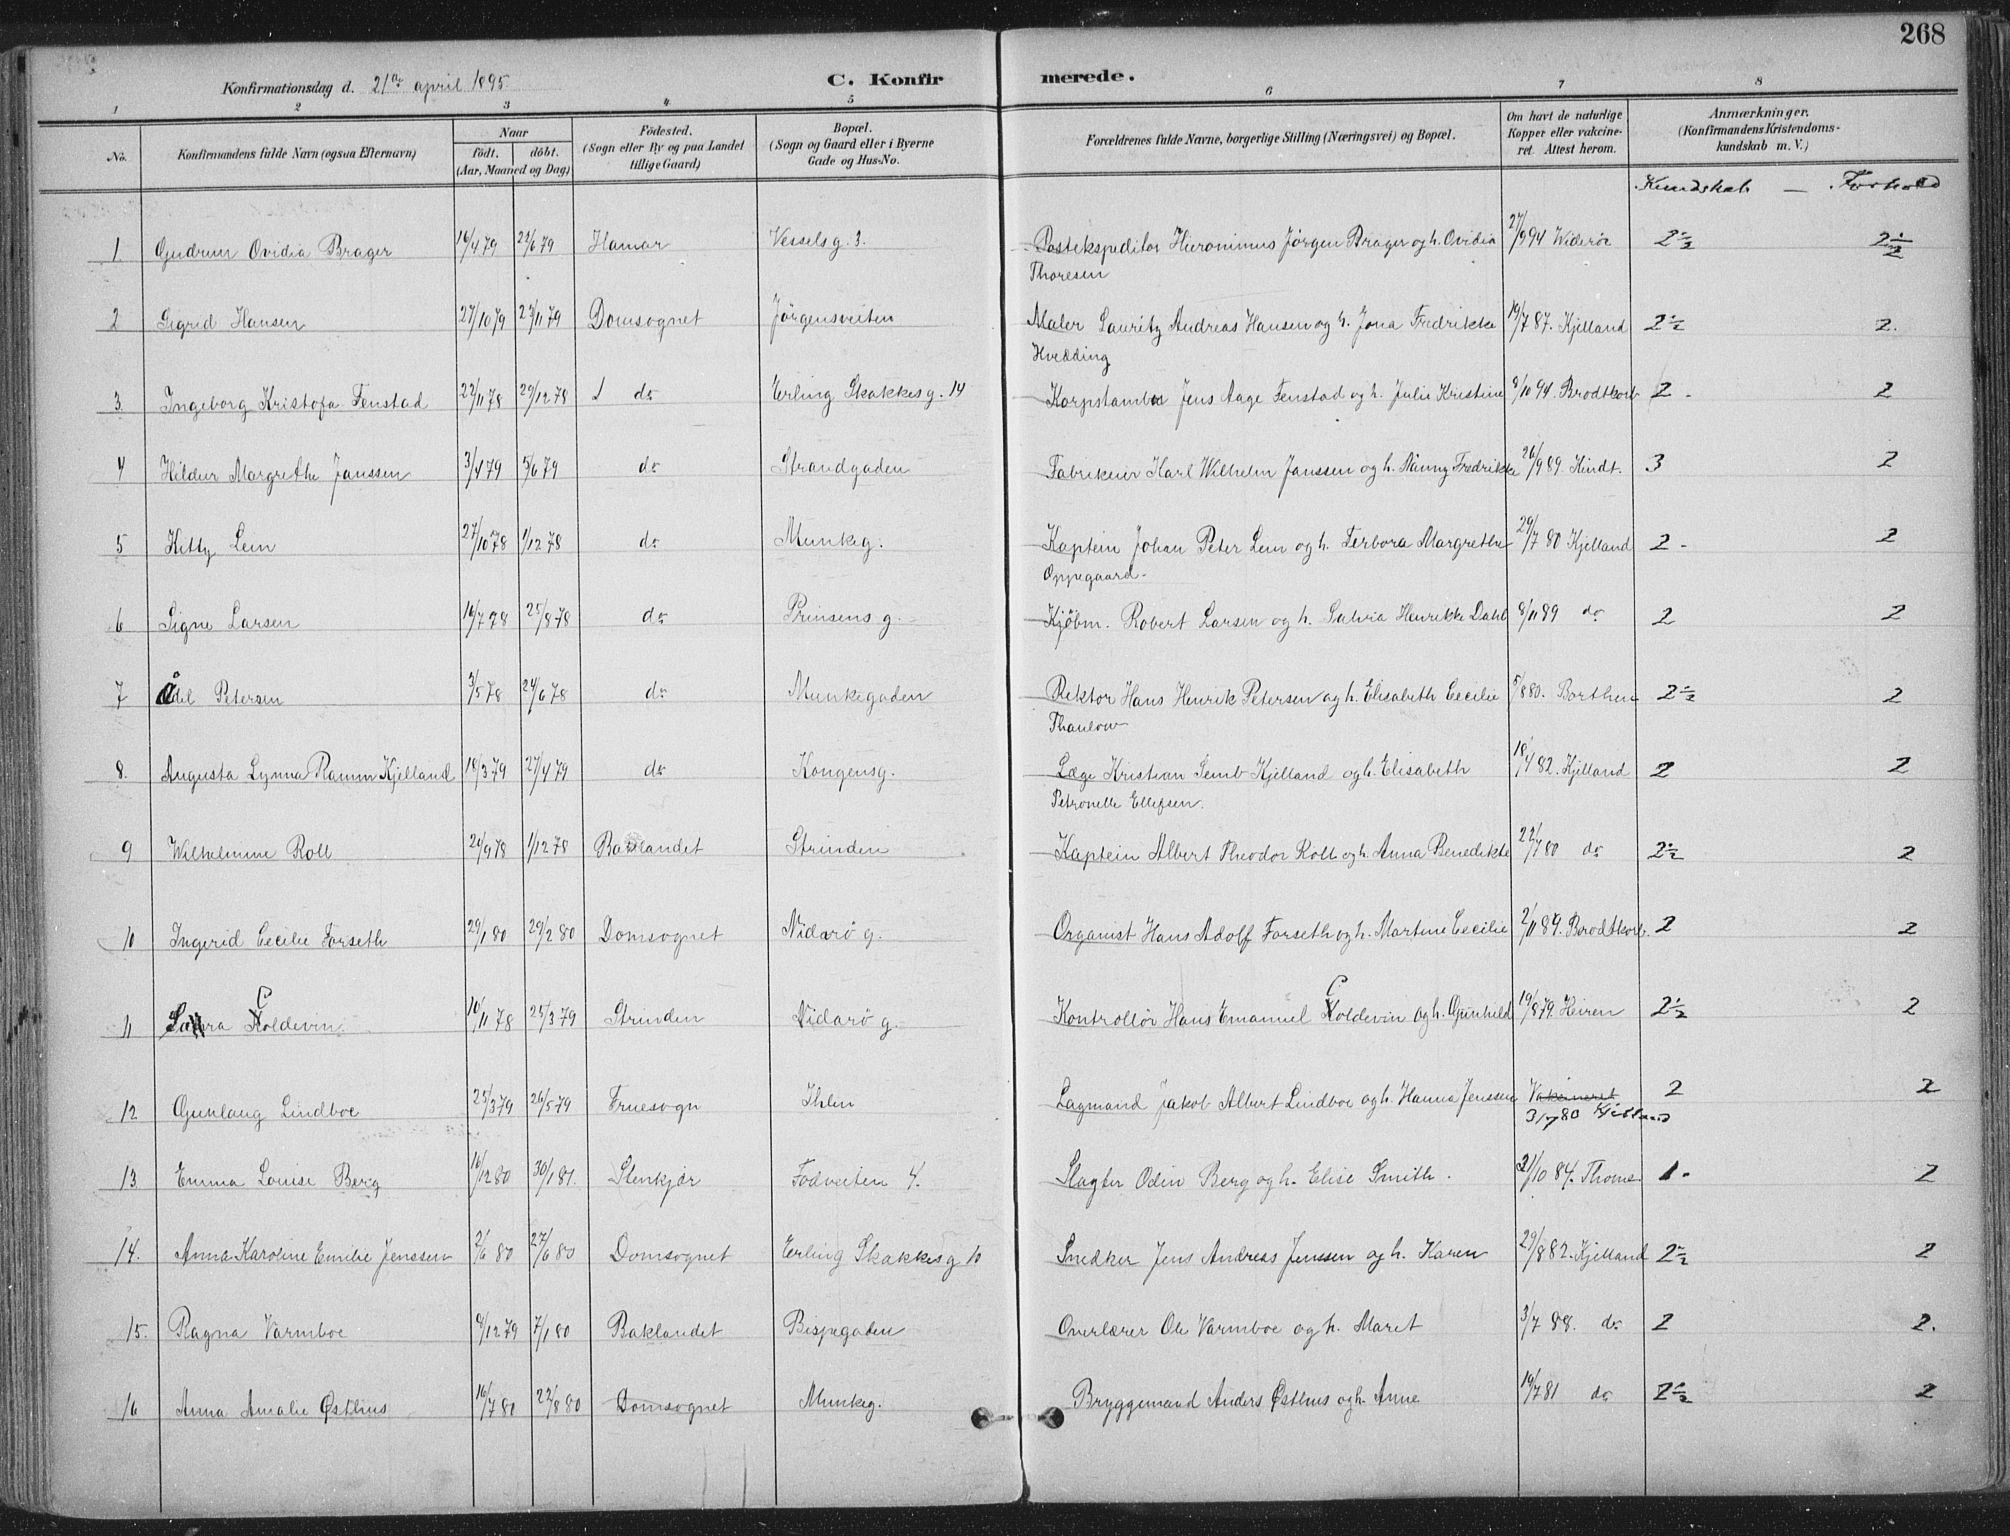 268
Konfirmationsdag d. 21de april 1895.
C. Konfirmerede.
1 2 3 4 5 6 7 8
No. Konfirmandens fulde Navn (ogsaa Efternavn) Naar født. døbt. (Aar, Maaned og Dag) Fødested. (Sogn eller By og paa Landet tillige Gaard) Bopæl. (Sogn og Gaard eller i Byerne Gade og Hus-No. Forældrenes fulde Navne, borgerlige Stilling (Næringsvei) og Bopæl. Om havt de naturlige Kopper eller vakcineret. Attest herom. Anmærkninger. (Konfirmandens Kristendomskundskab m. V.)
Kundskab — Forhold
1 Gudrun Ovidia Brager 16/4 79 22/6 79 Hamar Vesselsg. 3. Postekspeditør Hieronimus Jørgen Brager og h. Ovidia 27/9 94 Widerøe 2 1/2 2 1/2
Thoresen
2 Sigrid Hansen 27/10 79 23/11 79 Domsognet Jørgensveiten Maler Lauritz Andreas Hansen og h. Jona Fredrikke 19/7 87. Kjelland 2 1/2 2.
Hvedding
3. Ingeborg Kristofa Fenstad 22/11 78 29/12 78 do Erling Skakkesg. 14 Korpstambur Jens Aage Fenstad og h. Julie Kristine 8/10 94. Brodtkorb 2 2
4 Hildur Margrethe Janssen 3/4 79 5/6 79 do Strandgaden Fabrikeier Karl Wilhelm Janssen og h. Nanny Fredrikke 26/9 89 Hindt. 3 2
5 Kitty Lein 27/10 78 1/12 78 do Munkeg. Kaptein Johan Peter Lein og h. Ferbora Margrethe 29/7 80 Kjelland 2 2
Oppegaard
6 Signe Larsen 16/7 78 25/8 78 do Prinsens g. Kjøbm. Robert Larsen og h. Salvia Henrikke Dahl 8/11 89 do 2 2
7 Ådel Petersen 3/5 78 24/6 78 do Munkegaden Rektor Hans Henrik Petersen og h. Elisabeth Cecilie 5/8 80. Borthen 2 1/2 2
Thaulow
8. Augusta Lynna Ramm Kjelland 18/3 79 27/4 79 do Kongensg. Læge Kristian Semb Kjelland og h. Elisabeth 18/4 82. Kjelland 2 2
Petronelle Ellefsen.
9 Wilhelmine Roll 20/9 78 1/12 78 Baklandet Strinden Kaptein Albert Theodor Roll og h. Anna Benedikte 22/4 80 do 2 1/2 2
10 Ingerid Cecilie Forseth 29/1 80 29/2 80 Domsognet Nidarø g. Organist Hans Adolf Forseth og h. Martine Cecilie 2/11 89. Brodtkorb. 2 2
11 Coldevin. 10/11 78 25/3 79 Strinden Nidarø g. Kontrollør Hans Emanuel Coldevin og h. Gunhild 19/8 79. Heiren 2 1/2 2
12 Gunlaug Lindboe 25/3 79 26/5 79 Fruesogn Ihlen Lagmand Jakob Albert Lindboe og h. Hanna Jenssen Vakcineret 2 2
3/7 80 Kjelland
13. Emma Louise Berg 16/12 80 30/1 81. Stenkjær Fodveiten 4. Slagter Odin Berg og h. Elise Smith. 21/10 84. Thome 1 2
14. Anna Karoline Emilie Jenssen 2/6 80 27/6 80 Domsognet Erling Skakkesg 10 Snedker Jens Andreas Jenssen og h. Karen 29/8 82. Kjelland 2 1/2 2
15. Ragna Varmboe 8/12 79 7/1 80 Baklandet Bispegaden Overlærer Ole Varmboe og h. Maret 3/7 88. do 2 2.
16 Anna Amalie Østhus 16/7 80 22/8 80 Domsognet Munkeg. Bryggemand Anders Østhus og h. Anne 19/7 81 do 2 1/2 2